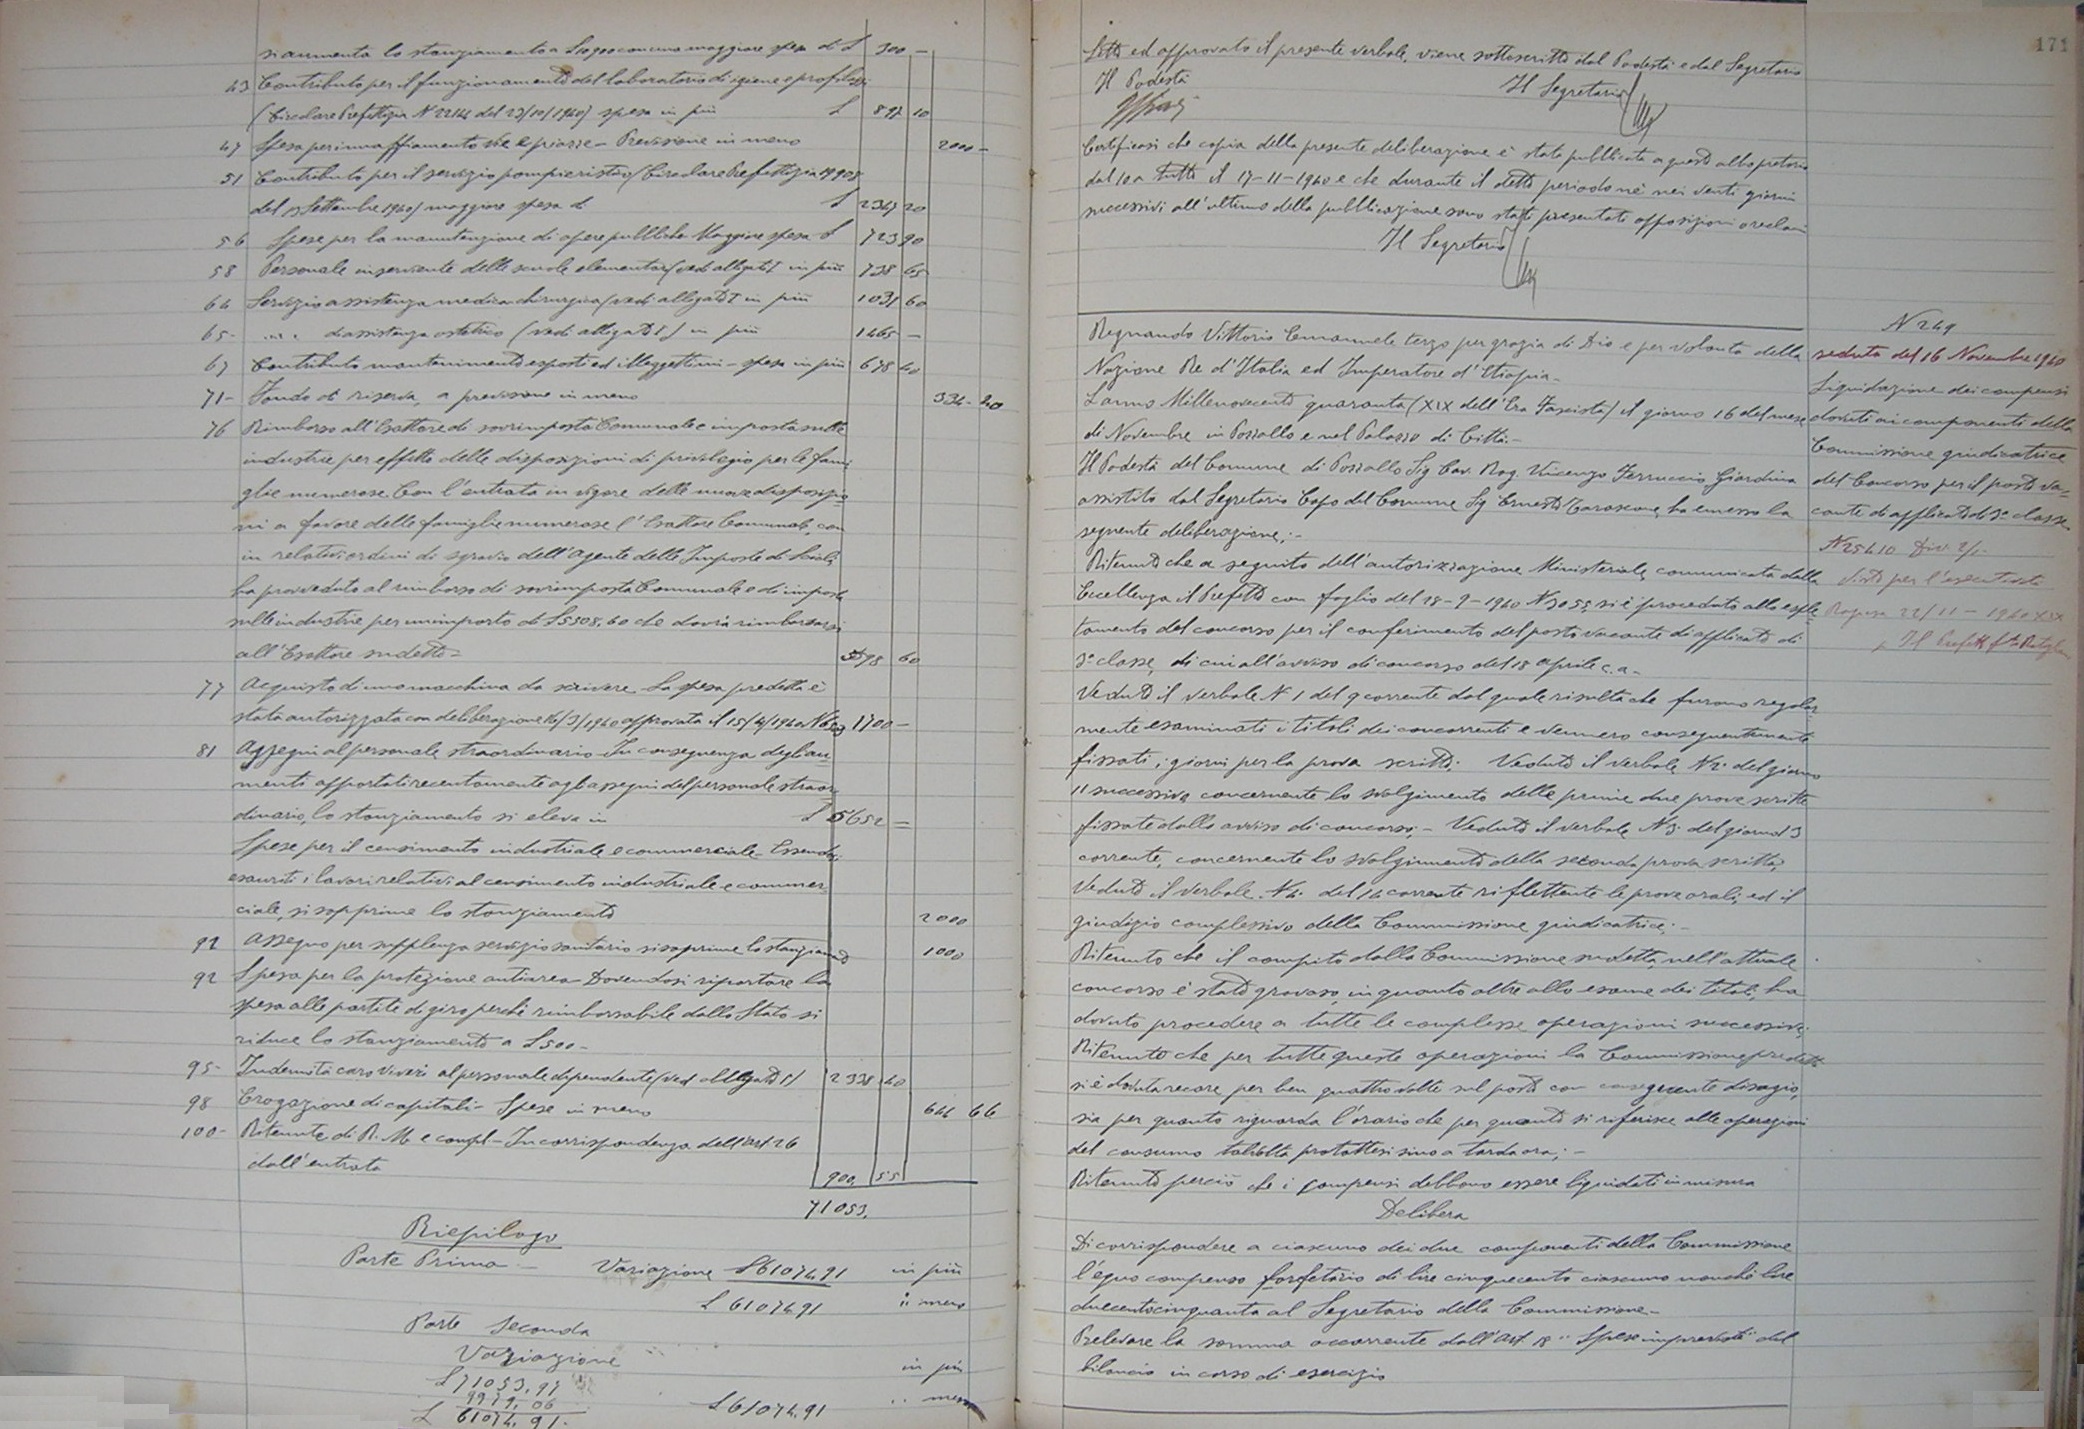 si aumenta lo stanziamento a L 1900 con una maggiore spesa di L 300 –
43 Contributo per il funzionamento del laboratorio di igiene e profilassi
(Circolare Prefettizia N 22144 del 23/10/1940) spesa in più L 897 10
47 Spesa per innaffiamento vie e piazze – Previsione in meno 2000 –
51 Contributo per il servizio pompieristico (Circolare Prefettizia
del Settembre 1940) maggiore spesa L 2347 20
56 Spese per la manutenzione di opere pubbliche Maggiore spesa L 723 90
58 Personale inserviente delle scuole elementari (vedi allegato) in più 738 65
64 Servizio assistenza medica chirurgica (vedi allegato) in più 1031 60
65 – di assistenza ostetrica (vedi allegato) in più 1465 –
67 Contributo mantenimento esposti ed illeggittimi – spesa in più 678 40
71 – Fondo di riserva, a previsione in meno 334 – 40
76 Rimborso all'Esattore di sovrimposta Comunale e imposta sulle
industrie per effetto delle disposizioni di privilegio per le fami
glie numerose. Con l'entrata in vigore delle nuove disposizio
ni a favore delle famiglie numerose l'Esattore Comunale, con
in relativi ordini di sgravio dell'Agente delle Imposte di Scicli,
ha provveduto al rimborso di sovrimposta Comunale e di imposta
sulle industrie per un importo di L 5508,60 che dovrà rimborsarsi
all'Esattore sudetto – 60
77 Acquisto di una macchina da scrivere La spesa predetta è
stata autorizzata con deliberazione 16/3/1940 approvata il 15/4/1940 1700 –
81 Assegni al personale straordinario – In conseguenza degli au
menti apportati recentemente agli assegni del personale straor
dinario, lo stanziamento si eleva in L 5652 =
Spese per il censimento industriale e commerciale – Essendo
esauriti i lavori relativi al censimento industriale e commer
ciale, si sopprime lo stanziamento 2000
91 Assegno per supplenza servizio sanitario si sopprime lo stanziamento 1000
92 Spesa per la protezione antiaerea – Dovendosi riportare la
spesa alle partite di giro perchè rimborsabile dallo Stato si
riduce lo stanziamento a L 500 –
95 – Indennità caro viveri al personale dipendente (vedi allegato) 2338 40
98 Erogazione di capitali – Spese in meno 644 66
100 – Ritenute di R. M. e compl – In corrispondenza dell'art 26
dall'entrata 900 55
71053,
Riepilogo
Parte Prima – Variazione L 61074,91 in più
L 61074,91 in meno
Parte Seconda
Variazione
L 71053,97 in più
9979,06
L 61074,91 – L 61074,91 meno
171
Letto ed approvato il presente verbale, viene sottoscritto dal Podestà e dal Segretario
Il Podestà Il Segretario
Certificasi che copia della presente deliberazione è stata pubblicata a questo albo pretorio
dal 10 a tutto il 17-11-1940 e che durante il detto periodo nè nei venti giorni
successivi all'ultimo della pubblicazione sono stati presentati opposizioni o reclami
Il Segretario
Regnando Vittorio Emanuele terzo per grazia di Dio e per volontà della
Nazione Re d'Italia ed Imperatore d'Etiopia –
L'anno Millenovecento quaranta (XIX dell'Era Fascista) il giorno 16 del mese
di Novembre in Pozzallo e nel Palazzo di Città –
Il Podestà del Comune di Pozzallo Sig Cav. Rag. Vincenzo Ferruccio Giardina
assistito dal Segretario Capo del Comune Sig Ernesto Tarascone, ha emesso la
seguente deliberazione; –
Ritenuto che a seguito dell'autorizzazione Ministeriale, comunicata dalla
Eccellenza il Prefetto con foglio del 18-9-1940 N 3055, si è proceduto allo esple
tamento del concorso per il conferimento del posto vacante di applicato di
3ª classe, di cui all'avviso di concorso del 18 aprile c.a. –
Veduto il verbale N 1 del 9 corrente dal quale risulta che furono regolar
mente esaminati i titoli dei concorrenti e vennero conseguentemente
fissati i giorni per la prova scritta; Veduto il verbale N 2 del giorno
11 successivo concernente lo svolgimento delle prime due prove scritte
fissate dallo avviso di concorso; – Veduto il verbale N 3 del giorno 13
corrente, concernente lo svolgimento della seconda prova scritta;
Veduto il verbale N 4 del 14 corrente riflettente le prove orali, ed il
giudizio complessivo della Commissione giudicatrice; –
Ritenuto che il compito della Commissione sudetta, nell'attuale
concorso è stato gravoso, in quanto oltre allo esame dei titoli, ha
dovuto procedere a tutte le complesse operazioni successive;
Ritenuto che per tutte queste operazioni la Commissione predetta
si è dovuta recare per ben quattro volte sul posto con conseguente disagio,
sia per quanto riguarda l'orario che per quanto si riferisce alle operazioni
del consumo talvolta protattesi sino a tarda ora; –
Ritenuto perciò che i compensi debbono essere liquidati in misura
Delibera
Di corrispondere a ciascuno dei due componenti della Commissione
l'equo compenso forfetario di lire cinquecento ciascuno nonchè lire
duecentocinquanta al Segretario della Commissione –
Prelevare la somma occorrente dall'art 18 "Spese impreviste" del
bilancio in corso di esercizio
N 249
seduta del 16 Novembre 1940
Liquidazione dei compensi
dovuti ai componenti della
Commissione giudicatrice
del Concorso per il posto va=
cante di applicato di 3ª classe
N 25410 Div. 2/1
Visto per l'esecutività
Ragusa 22/11 – 1940 XIX
p. Il Prefetto